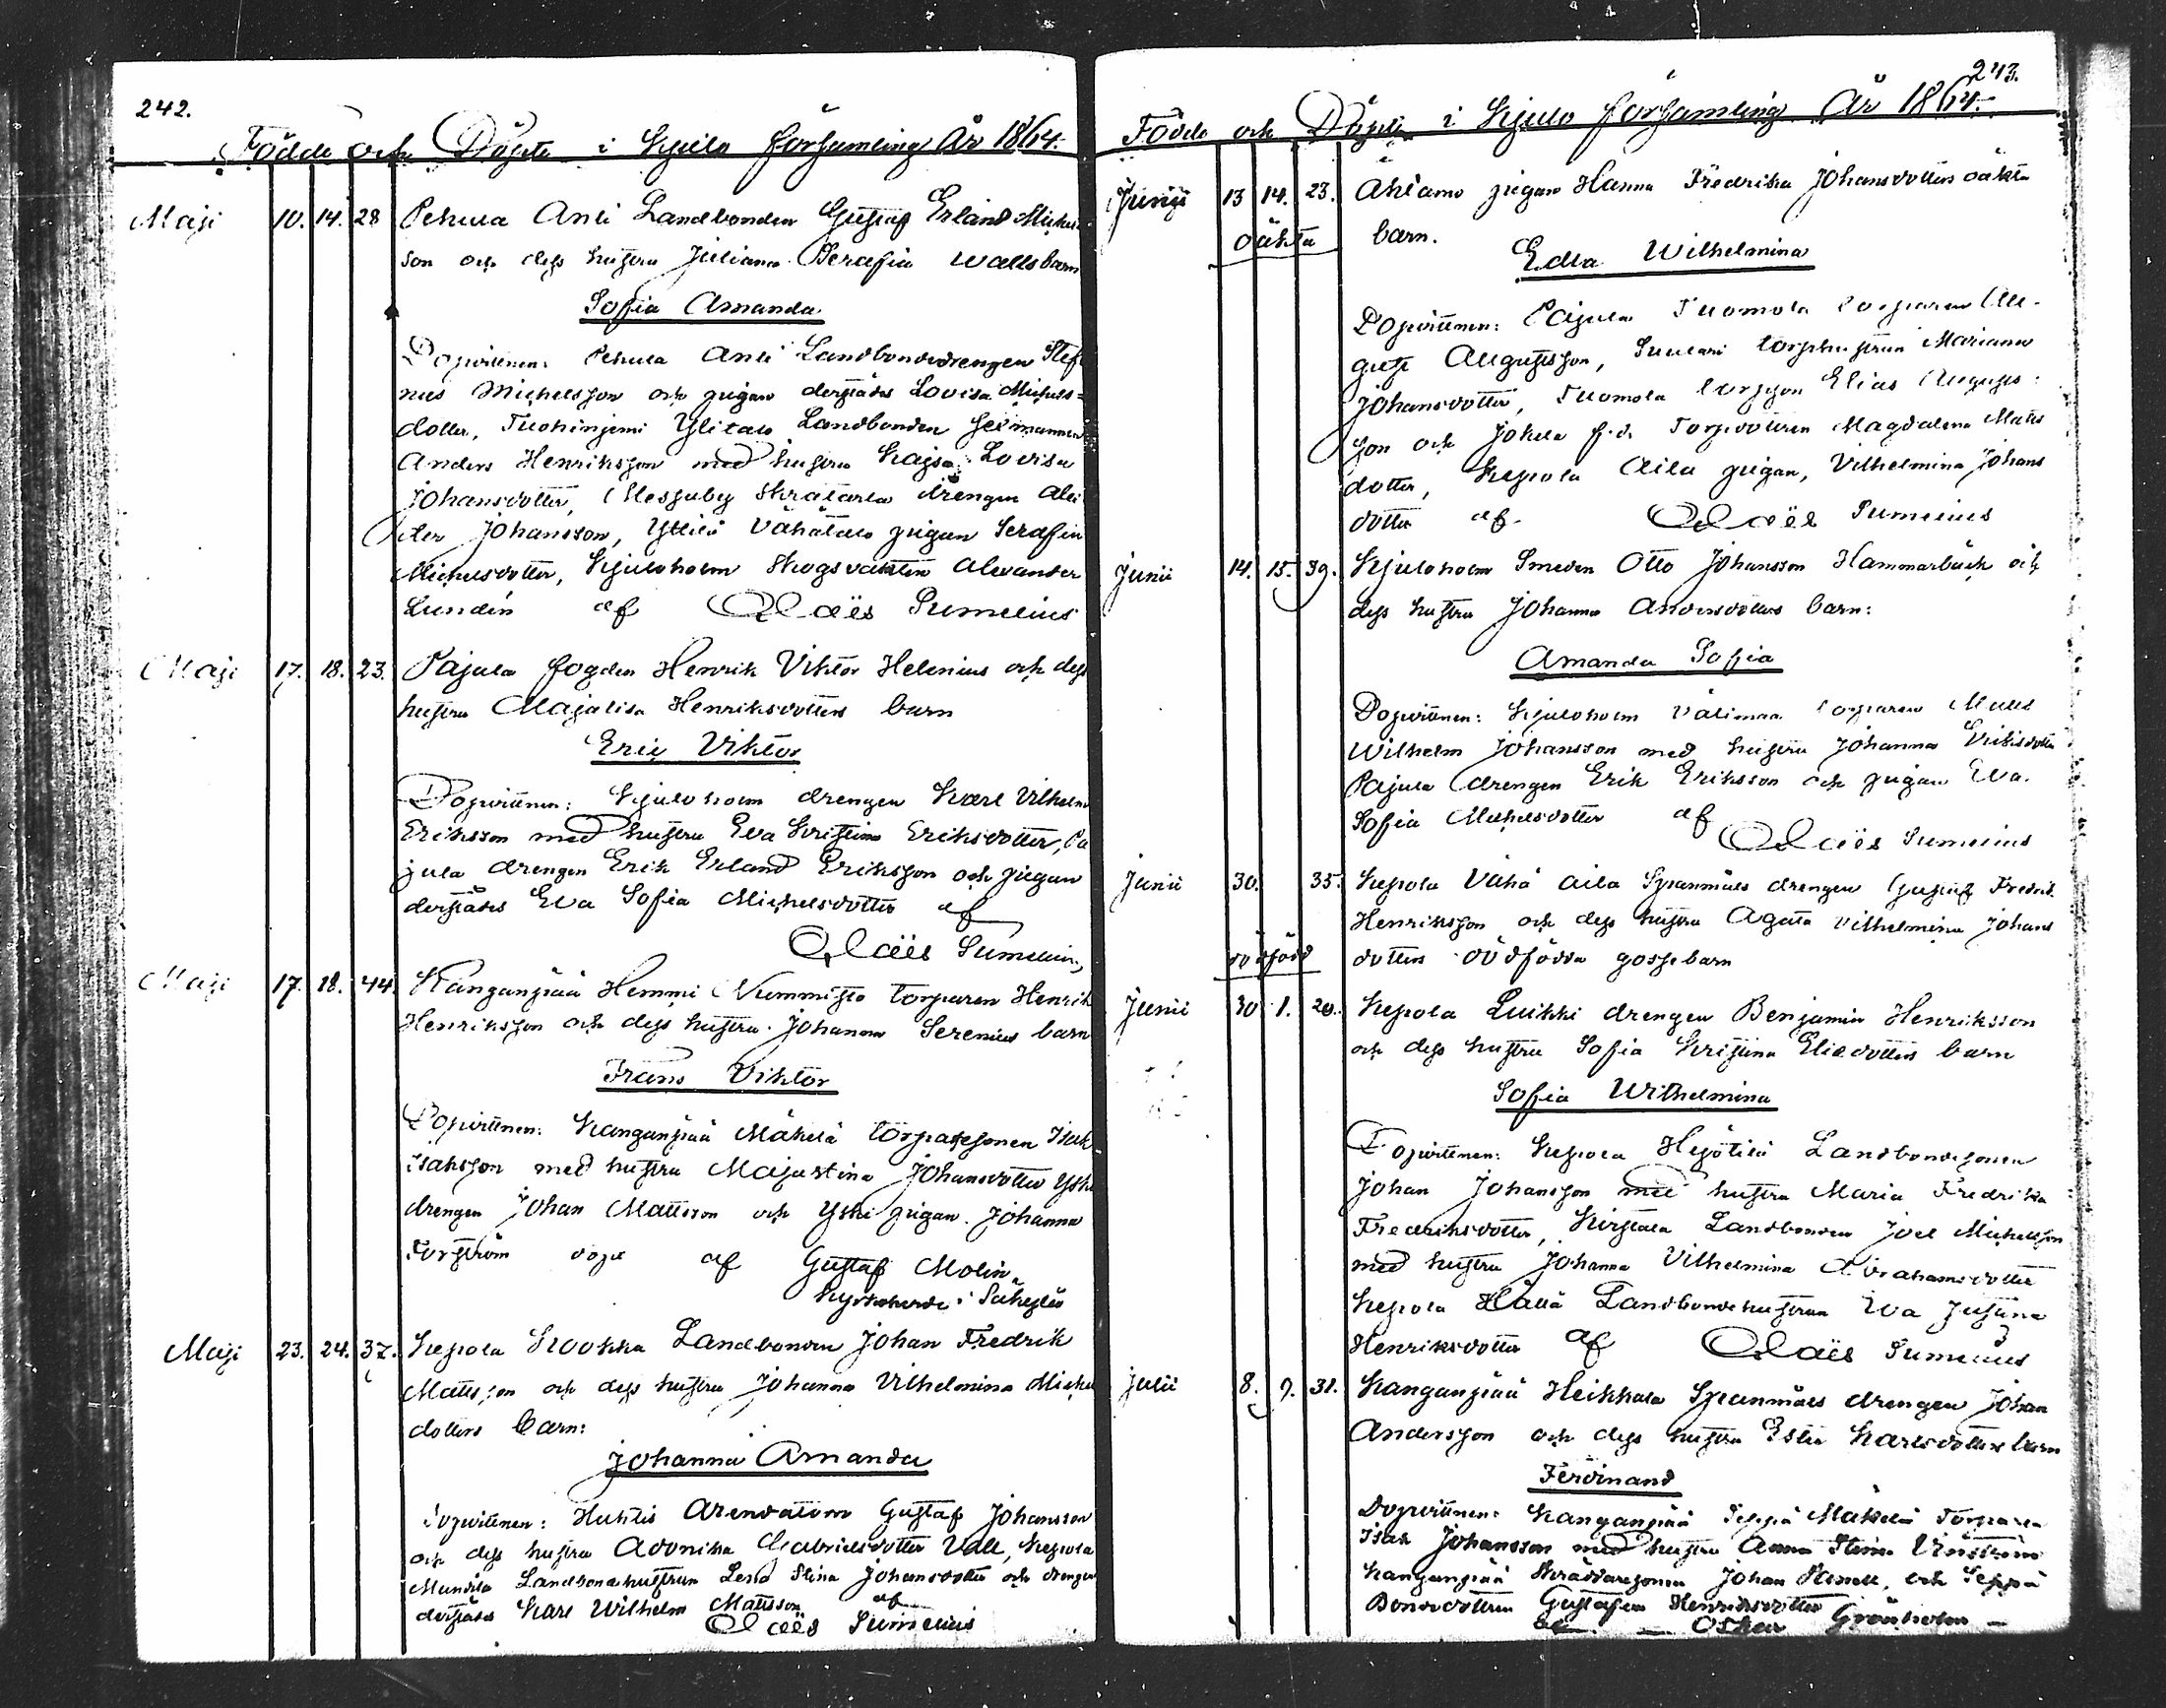 242.
Födde och Döpte i Kjulo församling År 1864.
Maji 10. 14. 28 Pehula Anti Landbonden Gustaf Erland Michels
son och dess hustru Juliana Serafia Walls barn
Sofia Amanda
Dopvittnen: Pehula Anti Landbondedrengen Stefa
nus Michelsson och pigan derstädes Lovisa Michels=
dotter, Tuohiniemi Ylitalo Landbonden
Anders Henriksson med hustru Kajsa Lovisa
Johansdotter, drengen
Johansson, Yttilä Vähätalo pigan Serafia
Michelsdotter, Kjuloholm Skogsvakten Alexander
Lundén af Claës Sumelius
Maji 17. 18. 23. Pajula fogden Henrik Viktor Helenius och dess
hustru Majalisa Henriksdotters barn
Eric Viktor
Dopvittnen: Kjuloholm drengen Karl Vilhelm
Eriksson med hustru Eva Kristina Eriksdotter, Pa
jula drengen Erik Erland Eriksson och pigan
derstädes Eva Sofia Michelsdotter af
Claës Sumelius
Maji 17. 18. 44. Kanganpää Hemmi Nummisto torparen Henrik
Henriksson och dess hustru Johanna Serenius barn
Frans Viktor
Dopvittnen: Kanganpää Mäkelä torparesonen Isak
Isaksson med hustru Majastina Johansdotter Yski
drengen Johan Mattsson och Yski pigan Johanna
Forsström döpt af Gustaf Molin,
kyrkoherde i Säkylä
Maji 23. 24. 37. Kepola Kookka Landbonden Johan Fredrik
Matsson och dess hustru Johanna Vilhelmina Michels
dotters barn:
Johanna Amanda
Dopvittnen: Huhtis Arendatorn Gustaf Johansson
och dess hustru Adonika Gabrielsdotter Vall, Kepola
Mundila Landbondehustrun Lena Stina Johansdotter och drengen
derstädes Karl Wilhelm Mattsson af
Claës Sumelius
243.
Födde och Döpte i Kjulo församling År 1864.
Junii 13 14. 23. Ahlamo pigan Hanna Fredrika Johansdotters oäkta
oäkta barn.
Edla Wilhelmina
Dopvittnen: Pajula Tuomola torparen Au-
gust Augustsson, Suutari torphustrun Mariana
Johansdotter, Tuomola torpson Elias Augusts-
son och Jokela f.d. Torpdottren Magdalena Mats
dotter, Kepola Aila pigan, Vilhelmina Johans
dotter af Claës Sumelius
Junii 14. 15. 39. Kjuloholm Smeden Otto Johansson Hammarbäck och
dess hustru Johanna Andersdotters barn:
Amanda Sofia
Dopvittnen: Kjuloholm Välimaa torparen Matts
Wilhelm Johansson med hustru Johanna Eriksdotter
Pajula drengen Erik Eriksson och pigan Eva
Sofia Michelsdotter af
Claës Sumelius
Junii 30. 35. Kepola Vähä Aila Spanmåls drengen Gustaf Fredrik
Henriksson och dess hustru Agata Vilhelmina Johans
dödfödd dotters dödfödda gossebarn
Junii 30 1. 20. Kepola Luikki drengen Benjamin Henriksson
och dess hustru Sofia Kristina Eliedotters barn
Sofia Wilhelmina
Dopvittnen: Kepola Hejötilä Landbondesonen
Johan Johansson med hustru Maria Fredrika
Fredriksdotter, Kirstala Landbonden Joel Michelsson
med hustru Johanna Vilhelmina Abrahamsdotter
Kepola Källä Landbondehustrun Eva Justina
Henriksdotter af Claës Sumelius
Julii 8. 9. 31. Kanganpää Heikkala Spanmåls drengen Johan
Andersson och dess hustru Ester Karlsdotters barn
Ferdinand
Dopvittnen: Kanganpää Seppä Mäkelä Torparen
Isak Johansson med hustru Anna Stina Vinström
Kanganpää Skräddaresonen Johan och Seppä
Bondedottren Gustafva Henriksdotter
af Oskar Grönholm